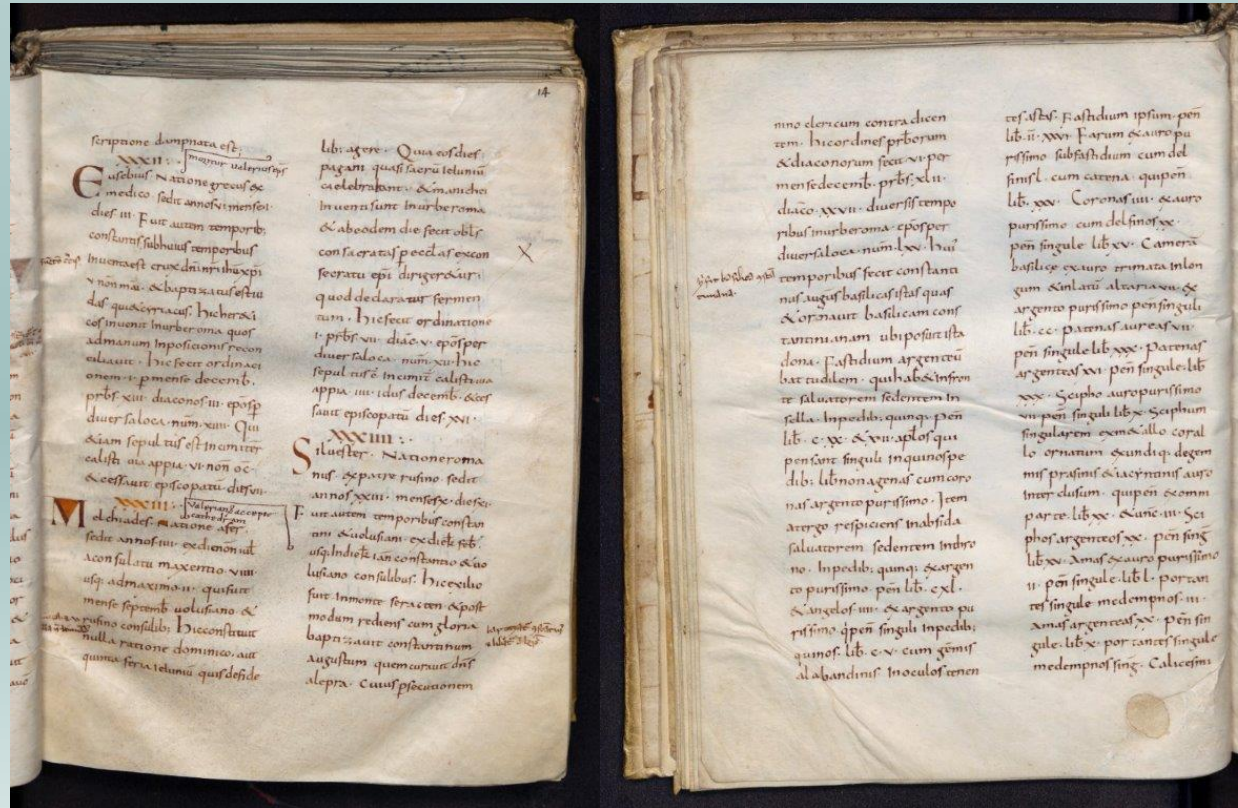 14
scriptione dampnata est;
XXXII:·
moritur valerius eps
Eusebius Natione grecus ex
medico sedit annos vi mense i
dies iii· Fuit autem temporib;
constantis sub huius temporibus
inventa est crux dñi nri ihu xpi
v non mai· & baptizatus est iu
das qui & cyriacus· hic here&i
cos invenit in urbe roma quos
ad manum inpositionis recon
ciliavit· hic fecit ordinati
onem· i· p mense decemb̄·
prb̄s· xiii· diaconos· iii· ep̄os p
diversa loca· num̄· xiiii· Qui
&iam sepultus est in cimiter
calisti via appia· vi· non oc·
& cessavit episcopatū dies vii·
XXXIII·
Valerianus accepit
cathedram
Melchiades· natione afer·
sedit annos· iiii· ex die non iul̄
a consulatu maxentio· viiii·
usq; ad maximo· ii· qui fuit
mense septemb̄ volusiano &
rufino consulib; hic constituit
nulla ratione dominico· aut
quinta feria ieiuniū quis de fide
lib; agere· Quia eos dies·
pagani quasi sacrū ieiuniū
caelebrabant· & manichei
inventi sunt in urbe roma
& ab eodem die fecit obl̄s
consacratas p eccl̄as ex con
secratu epī dirigerentur·
quod declaratur fermen
tum· hic fecit ordinatione
·i· prb̄s· vii· diac̄· v· ep̄os per
diversa loca· num̄· xii· hic
sepultus ē in cimit̄ calisti via
appia· iiii· idus decemb̄· & ces
savit episcopatū dies xvi·
XXXIIII:·
Siluester· Natione roma
nus· ex patre rufino· sedit
annos xxiii· menses x· dies xi·
Fuit autem temporibus constan
tini & volusiani· ex die k̄ feb̄·
usq; in die k̄ iañ constantio & vo
lusiano consulibus· hic exilio
fuit in monte seracten· & post
modum rediens cum gloria
baptizavit constantinum
augustum quem curavit dns̄
a lepra· Cuius p̄secutionem
mno clericum contra dicen
tem· hic ordines prb̄orum
& diaconorum fecit· vi· per
mense decemb̄· prb̄s· xlii·
diac̄o· xxvii· diversis tempo
ribus in urbe roma· ep̄os per
diversa loca· num̄· lxv· hui'
temporibus fecit constanti
nus augus̄ basilicas istas quas
& ornavit basilicam cons
tantinianam ubi posuit ista
dona· Fastidium argenteū
battudilem· qui hab& in fron
te salvatorem sedentem in
sella· In pedib; quinq; pen̄
lib̄· c· xx· & xii· aplos qui
pensant singuli in quinos pe
dib; lib̄ nonagenas cum coro
nas argento purissimo· Item
a tergo respiciens in absida
salvatorem sedentem in thro
no· In pedib; quinq; ex argen
to purissimo· pen̄ lib̄· c xl·
& angelos· iiii· ex argento pu
rissimo q̄ pen̄ singuli in pedib;
quinos· lib̄· c· v· cum gemis
alabandinis in oculos tenen
tes astas· Fastidium ipsum· pen̄
lib̄· ii· xxv· Farum ex auro pu
rissimo sub fastidium cum del
finis l· cum catena· qui pen̄·
lib̄· xxv· Coronas iiii· ex auro
purissimo· cum delfinos xx·
pen̄ singule lib̄ xv· Camerā
basilice ex auro trimata in lon
gum & in latū altaria vii· ex
argento purissimo pen̄ singuli
lib̄· cc· patenas aureas vii·
pen̄ singule lib̄ xxx· Patenas
argenteas xvi· pen̄ singule· lib̄
xxx· Scipho auro purissimo
vii· pen̄ singuli lib̄ x· Sciphum
singularem ex m&allo coral
lo ornatum ex undiq; de gem
mis prasinis & iacyntinis auro
inter clusum· qui pen̄ ex omni
parte· lib̄ xx· & unc̄· iii· Sci
phos argenteos xx· pen̄ sing̅
lib̄ xv· Amas ex auro purissimo
ii· pen̄ singule· lib̄ l· portan
tes singule medempnos· iii·
Amas argenteas xx· pen̄ sin
gule· lib̄ x· portantes singule
medempnos sing̅· Calices mi